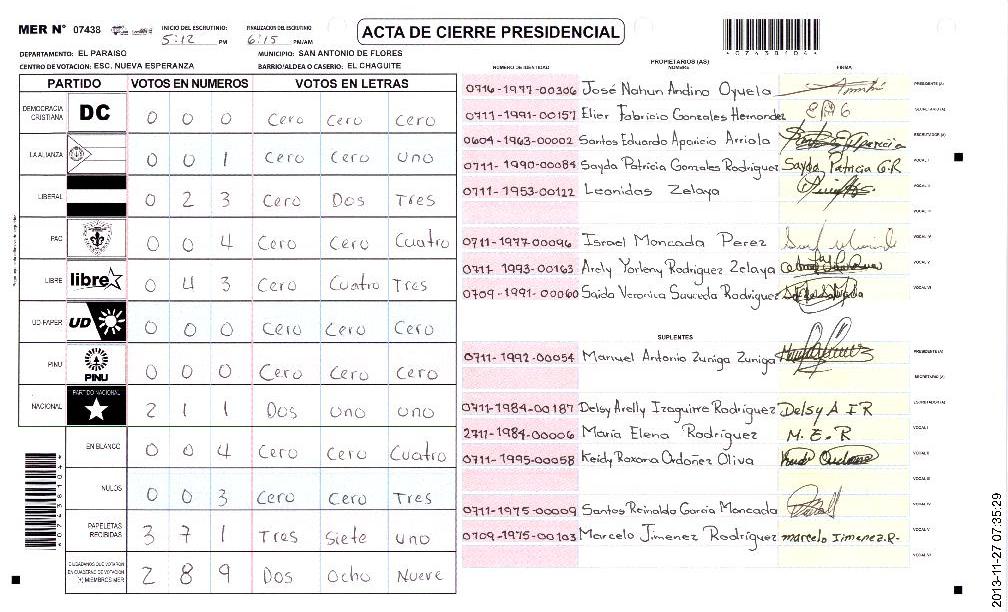 MER N° 07438 INICIO DEL ESCRUTINIO: 5:12 PM FINALIZACION DEL ESCRUTINIO 6:15 PM/AM ACTA DE CIERRE PRESIDENCIAL *07438104*
DEPARTAMENTO: EL PARAISO MUNICIPIO: SAN ANTONIO DE FLORES
CENTRO DE VOTACION: ESC. NUEVA ESPERANZA BARRIO/ALDEA O CASERIO: EL CHAGUITE
PARTIDO VOTOS EN NUMEROS VOTOS EN LETRAS
DEMOCRACIA CRISTIANA DC 0 0 0 Cero Cero Cero
LA ALIANZA 0 0 1 Cero Cero Uno
LIBERAL 0 2 3 Cero Dos Tres
PAC 0 0 4 Cero Cero Cuatro
LIBRE libre 0 4 3 Cero Cuatro Tres
UD-FAPER UD 0 0 0 Cero Cero Cero
PINU PINU 0 0 0 Cero Cero Cero
NACIONAL PARTIDO NACIONAL 2 1 1 Dos uno uno
EN BLANCO 0 0 4 Cero Cero Cuatro
NULOS 0 0 3 Cero Cero Tres
PAPELETAS RECIBIDAS 3 7 1 Tres Siete uno
CIUDADANOS QUE VOTARON EN CUADERNO DE VOTACION (+) MIEMBROS MER 2 8 9 Dos Ocho Nueve
*07438104*
PROPIETARIOS (AS)
NUMERO DE IDENTIDAD NOMBRE FIRMA
0716-1977-00306 José Nahun Andino Oyuela PRESIDENTE (A)
0711-1991-00157 Elier Fabricio Gonzales Hernandez SECRETARIO (A)
0604-1963-00002 Santos Eduardo Aparicio Arriola Aparicio ESCRUTADOR (A)
0711-1990-00084 Sayda Patricia Gonzales Rodriguez Sayda Patricia G.R VOCAL I
0711-1953-00122 Leonidas Zelaya VOCAL II
VOCAL III
0711-1977-00096 Israel Moncada Perez VOCAL IV
0711-1993-00163 Arely Yorleny Rodriguez Zelaya VOCAL V
0709-1991-00060 Saida Veronica Sauceda Rodriguez VOCAL VI
SUPLENTES
0711-1992-00054 Manuel Antonio Zuniga Zuniga PRESIDENTE (A)
SECRETARIO (A)
0711-1984-00187 Delsy Arelly Izaguirre Rodriguez Delsy A I R ESCRUTADOR (A)
2711-1984-00006 Maria Elena Rodríguez M. E. R VOCAL I
0711-1995-00058 Keidy Roxana Ordoñez Oliva VOCAL II
VOCAL III
0711-1975-00009 Santos Reinaldo Garcia Moncada VOCAL IV
0709-1975-00103 Marcelo Jimenez Rodríguez marcelo Jimenez.R. VOCAL V
VOCAL VI
2013-11-27 07:35:29